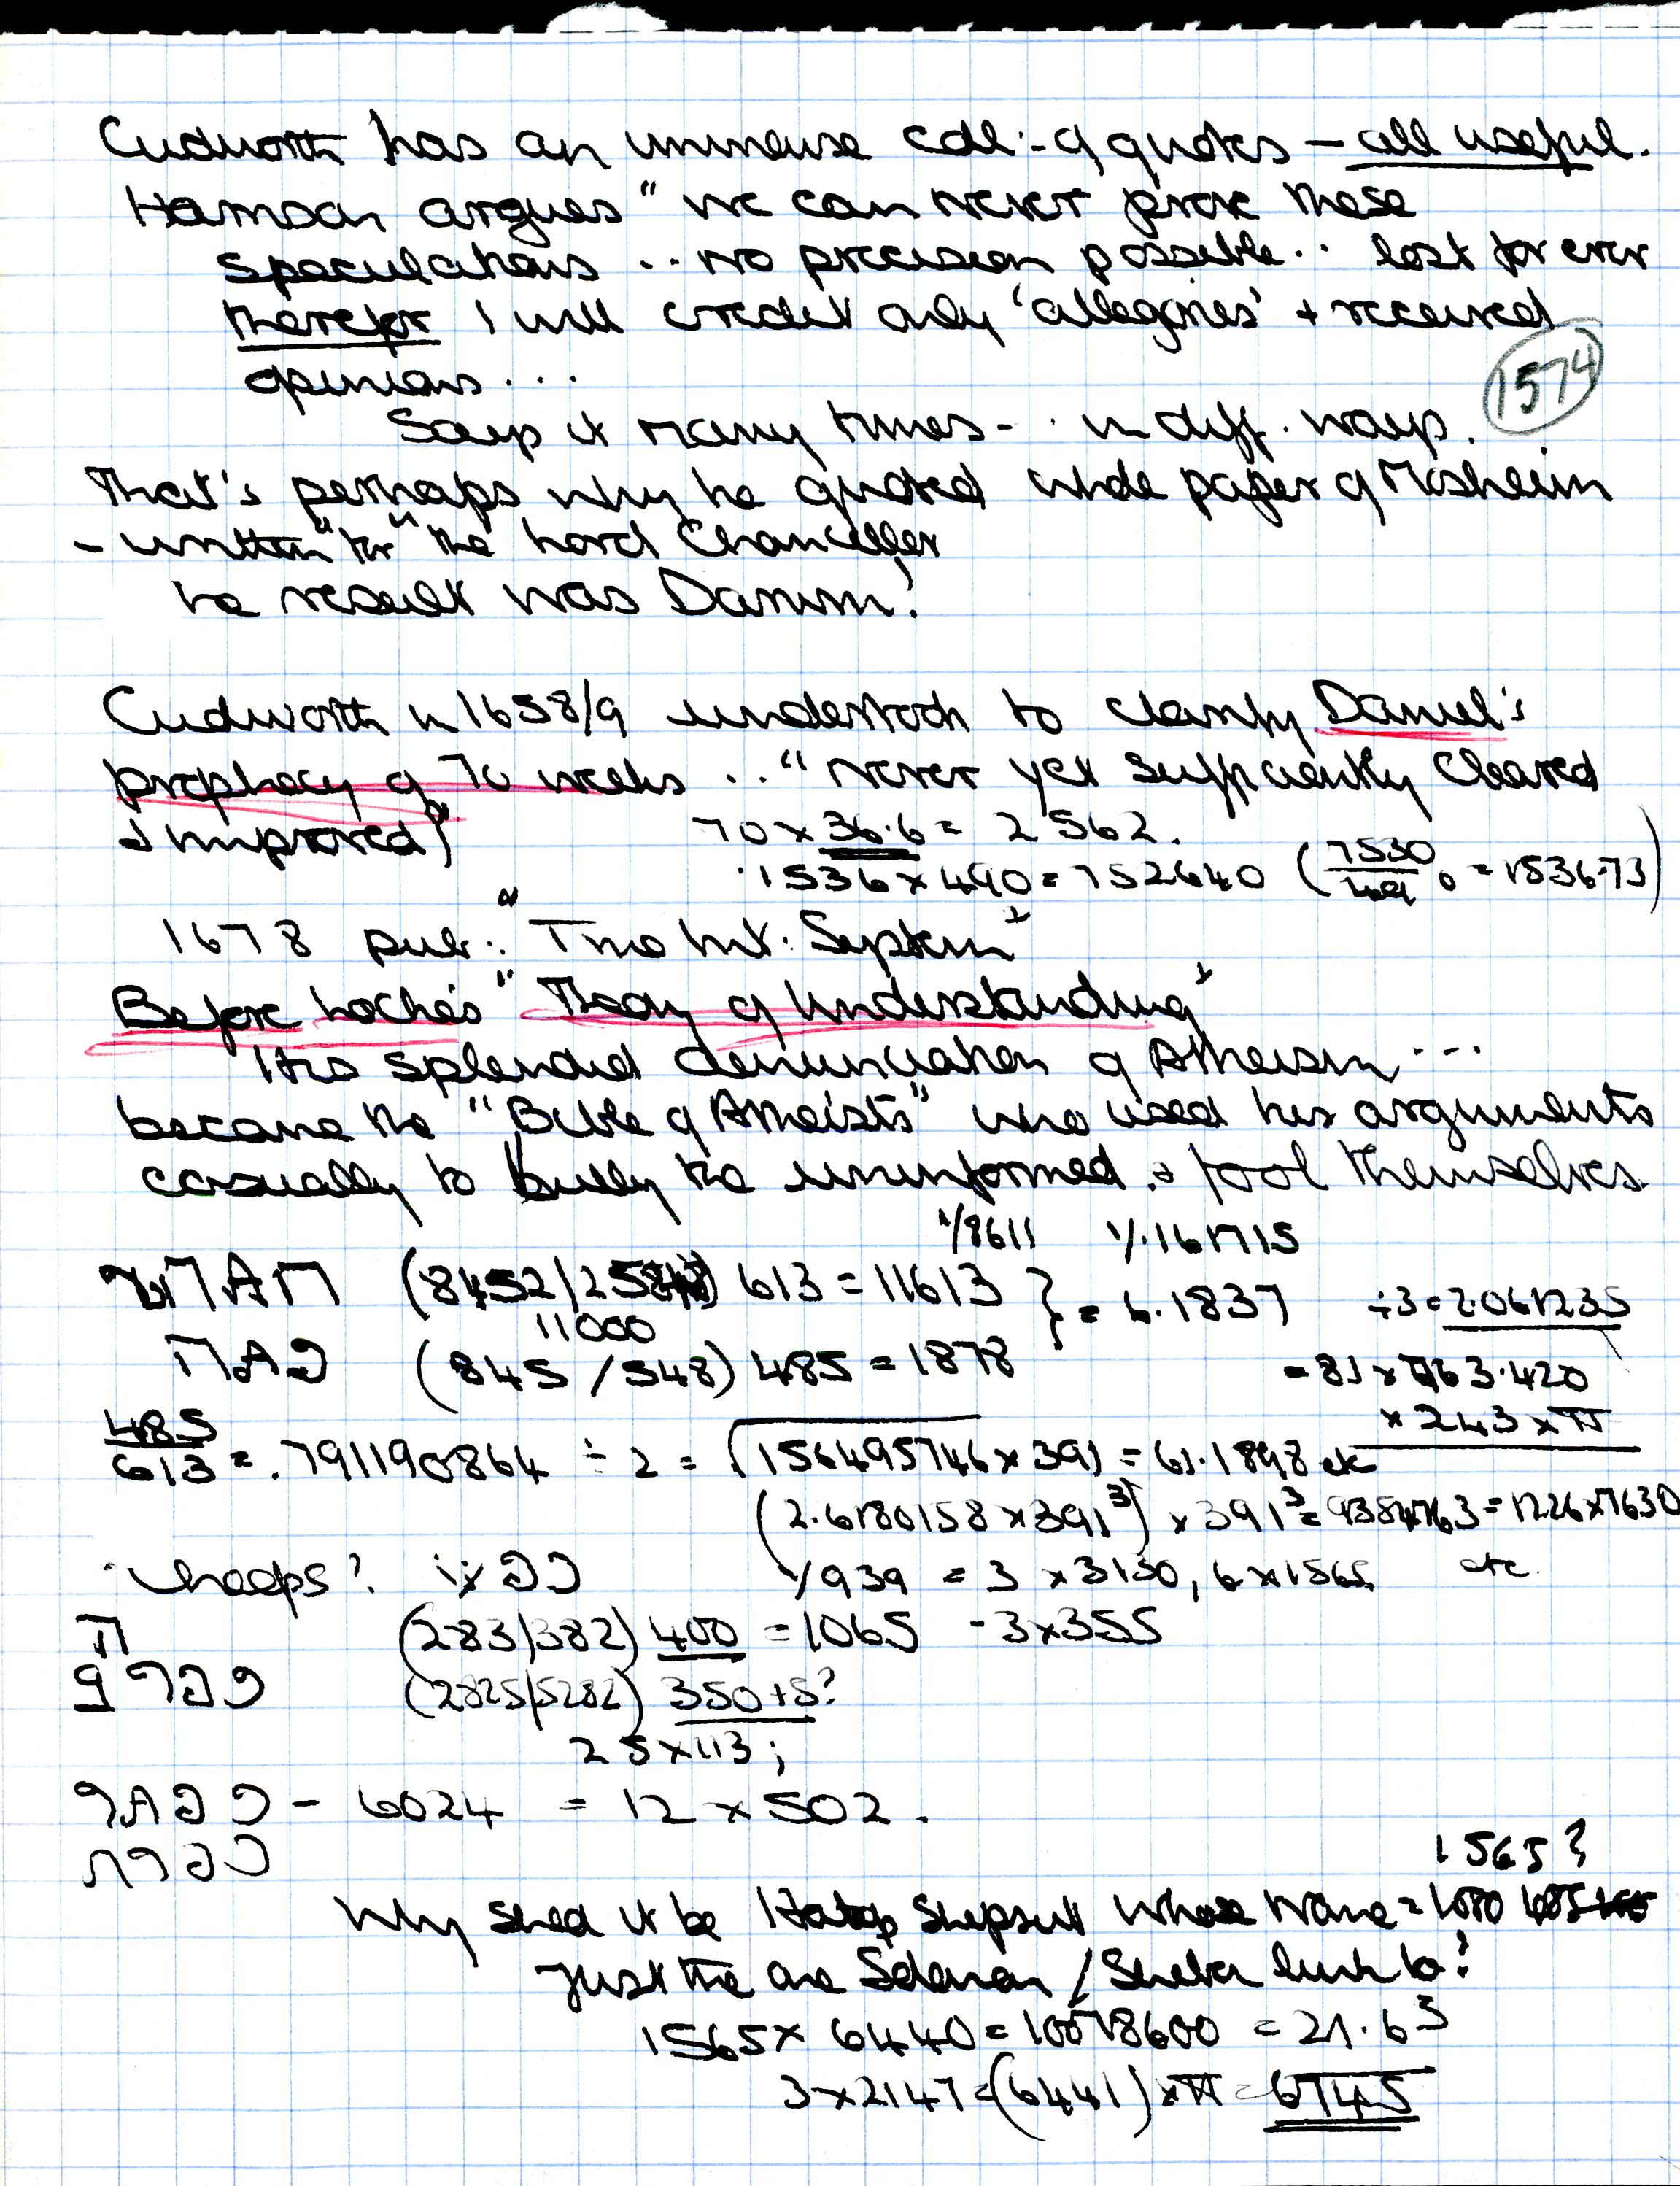 Cudworth has an immense coll. of quotes — all useful.
Harrison argues "we can never prove these
speculations .. no precision possible .. lost for ever
therefor I will credit only 'allegories' + received
opinions ...
1574
Says it many times - . in diff. ways.
That's perhaps why he quoted whole paper of Mosheim
- written "for" the Lord Chancellor
he result was Damm!
Cudworth in 1658/9 undertook to clarify Daniel's
prophecy of 70 weeks ... "never yet sufficiently cleared
& improved"
70 x 36.6 = 2562.
1536 x 490 = 752640 (7530/49 0 = 153673)
1678 pub: "True Int. System"
Before Locke's "Theory of Understanding"
His splendid denunciation of Atheism ...
became the "Bible of Atheists" who used his arguments
casually to bully the uninformed & fool themselves.
1/8611 1/.161715
(8452/2548) 613 = 11613 } = 6.1837 ÷3 = 2.061235
11000
(845/548) 485 = 1878
= 81 x 763.420
x 243 x π
485/613 = .791190864 ÷ 2 = √156495746 x 391 = 61.1898 etc
(2.6180158 x 391³) x 391³ = 9384763 = 1226 x 7630
Cheops?
1/939 = 3 x 3130, 6 x 1565 etc.
(283/382) 400 = 1065 - 3x355
(2825/5282) 350+5?
25x113;
- 6024 = 12 x 502.
1565?
Why shd it be Hatshepsut whose name = 1080
just the one Solomon / Sheba link to?
1565 x 6440 = 10078600 = 21.6³
3 x 2147 = (6441) x π = 6745